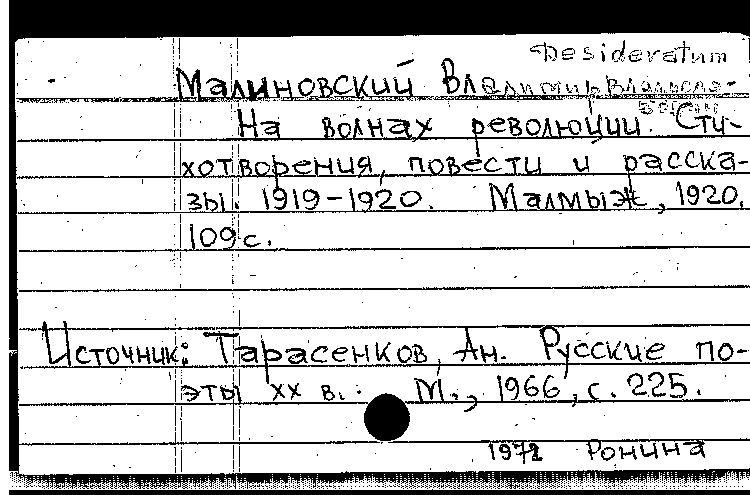 Desideratum
Малиновский Владимир Владисла-
На волнах революции. Сти-
хотворения, повести и расска-
зы. 1919-1920. Малмыж, 1920.
109 с.
Источник: Тарасенков, Ан. Русские по-
эты XX в. М., 1966, с. 225.
1972 Ронина